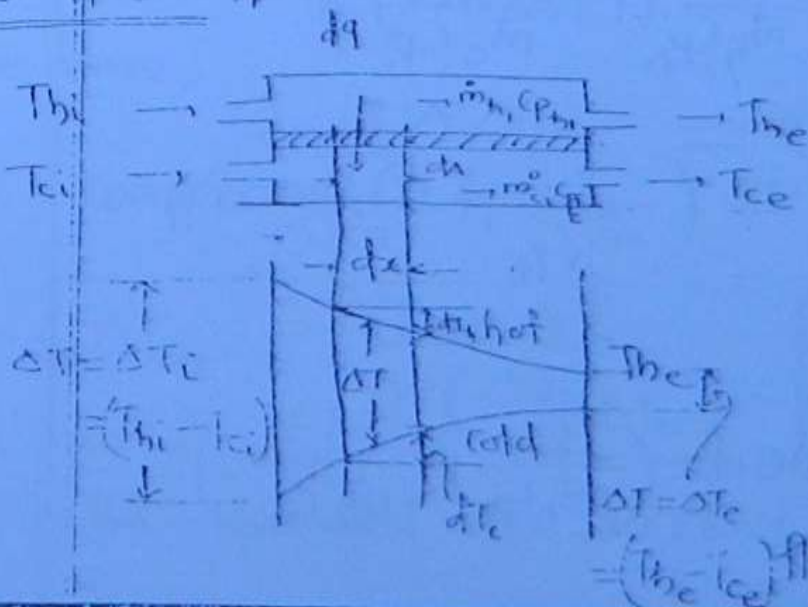 dq
Thi → → ṁh, Cph, → The
Tci → dA → ṁc, Cpc → Tce
dx
dTh hot
ΔT = ΔTi ΔT The
= (Thi - Tci) cold
dTc ΔT = ΔTe
= (The - Tce)